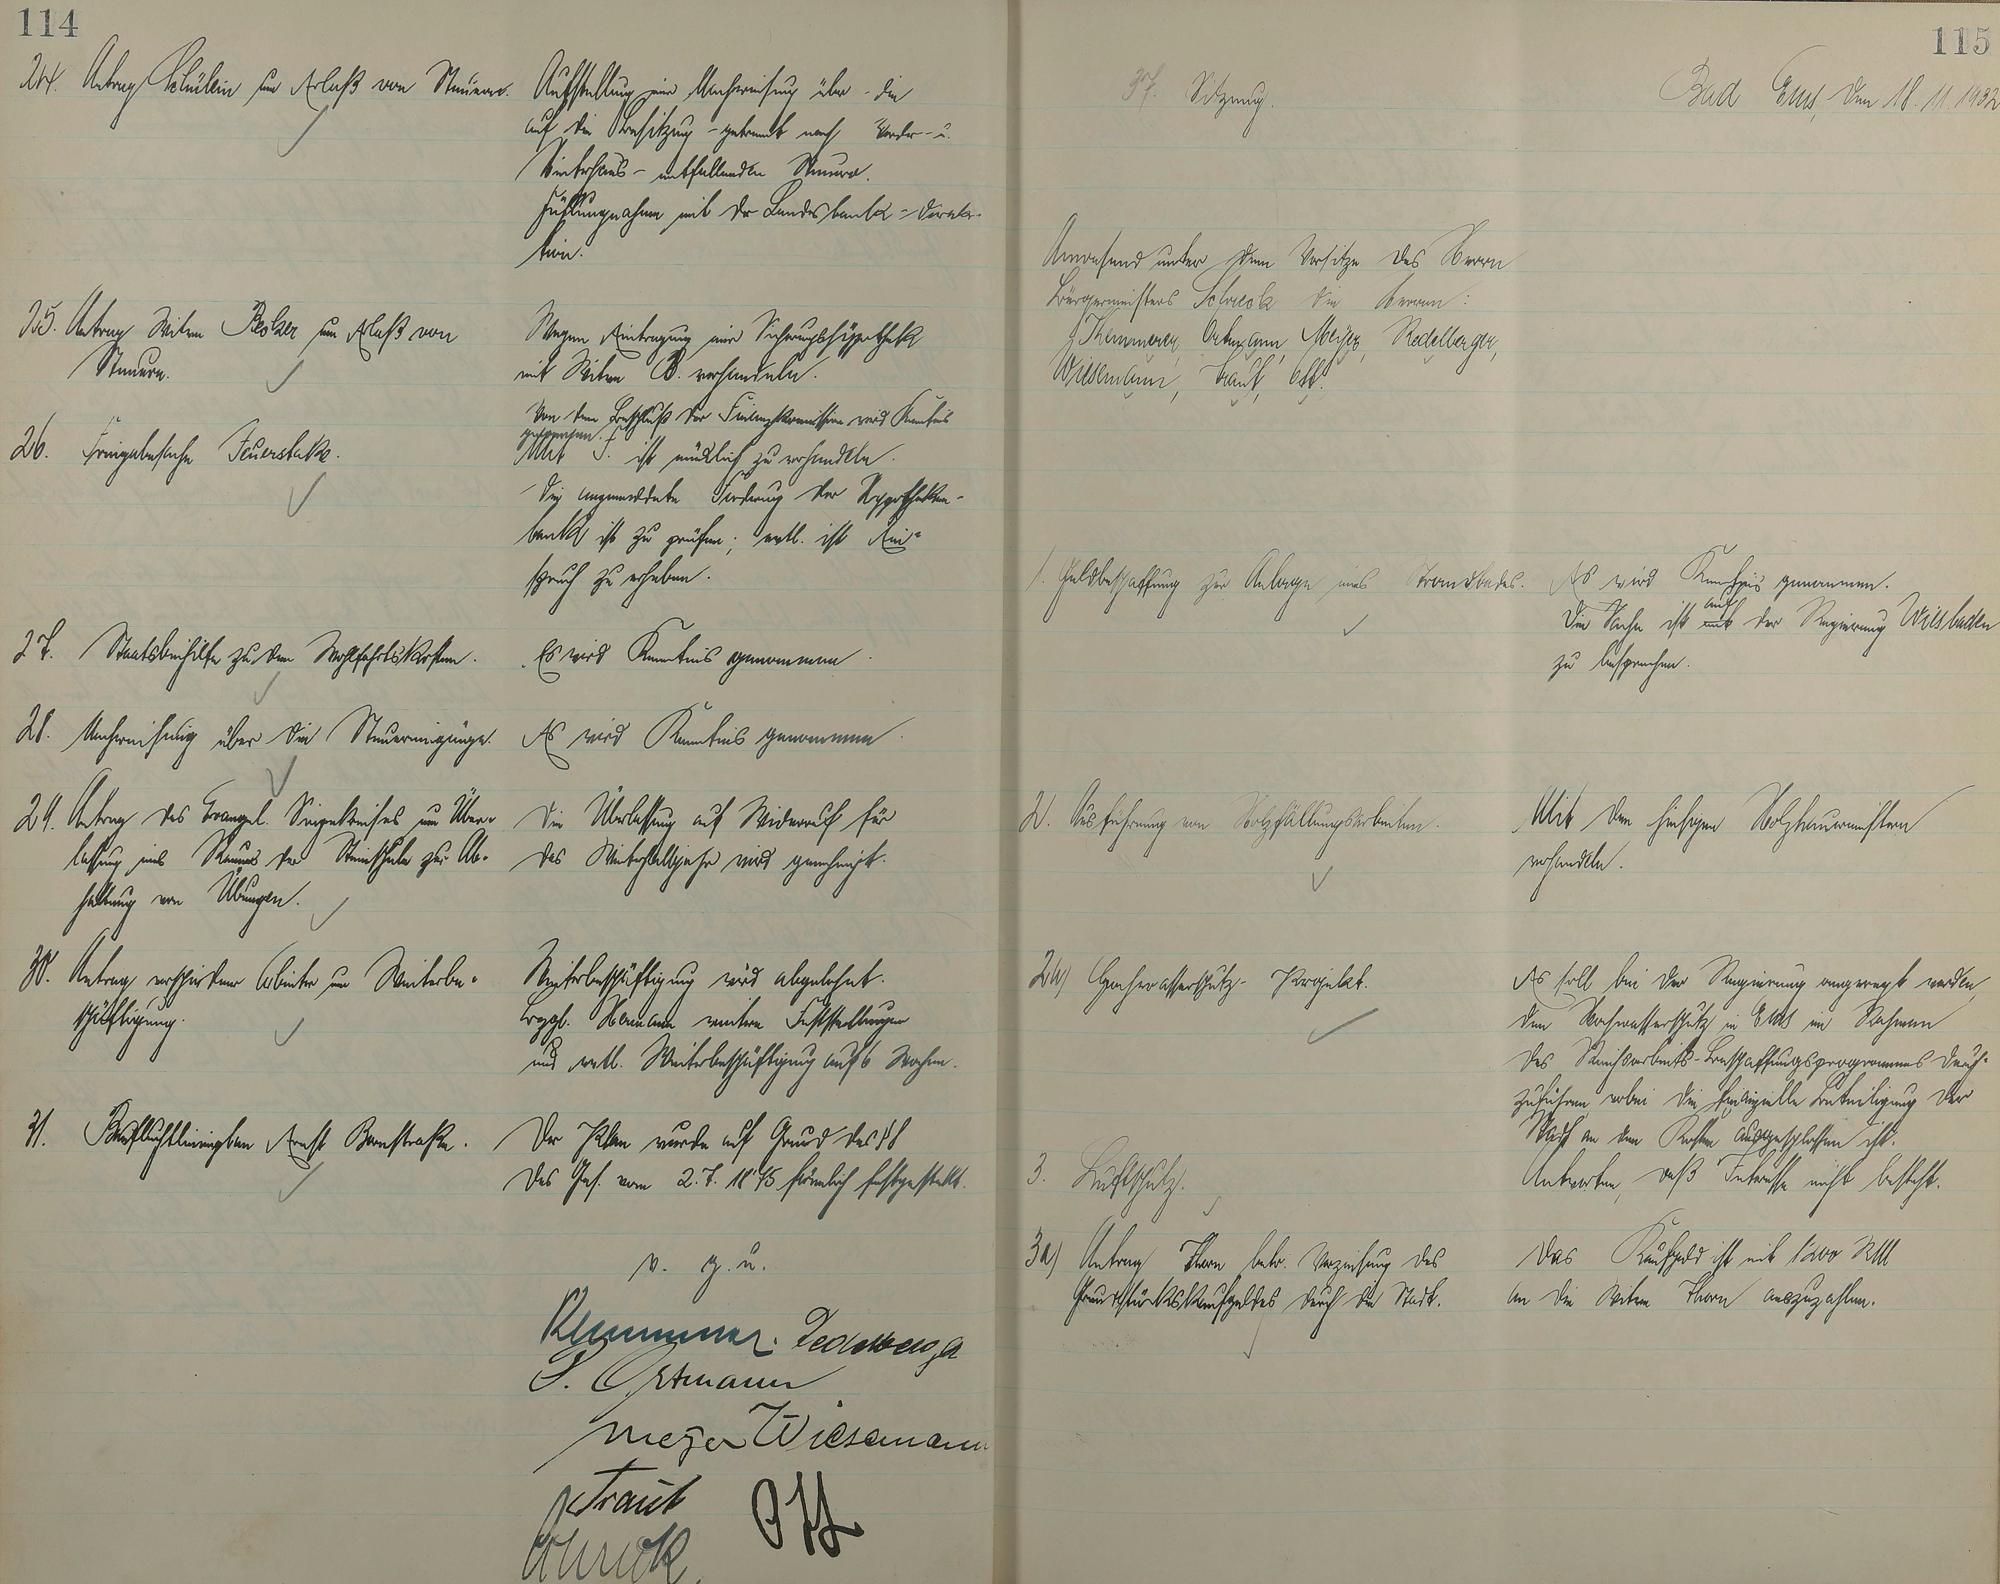 114
24. Antrag Schülein um Erlaß von Steuern.
Aufstellung einer Nachweisung über die
auf die Besitzung - getrennt nach Vorder- u.
Hinterhaus - entfallenden Steuern.
Fühlungnahme mit der Landesbank-Direk-
tion.
25. Antrag Witwe Becker um Erlaß von
Steuern.
Wegen Eintragung einer Sicherungshypothek
mit Witwe B. verhandeln.
26. Freigabesache Feuerstake.
Von dem Beschluß der Finanzkommission wird Kenntnis
genommen.
Mit F. ist mündlich zu verhandeln.
Die angemeldete Forderung der Hypotheken-
bank ist zu prüfen; evtl. ist Ein-
spruch zu erheben.
27. Staatsbeihilfe zu den Wohlfahrtskosten.
Es wird Kenntnis genommen.
28. Nachweisung über die Steuereingänge.
Es wird Kenntnis genommen.
29. Antrag des Evangel. Singekreises um Über-
lassung eines Raumes der Steinschule zur Ab-
haltung von Übungen.
Die Überlassung auf Widerruf für
das Winterhalbjahr wird genehmigt.
30. Antrag verschiedener Arbeiter um Weiterbe-
schäftigung.
Weiterbeschäftigung wird abgelehnt.
Bezgl. Hemann weitere Feststellungen
und evtl. Weiterbeschäftigung auf 6 Wochen.
31. Baufluchtlinienplan Ernst Bornstraße.
Der Plan wurde auf Grund des § 8
des Ges. vom 2.7.1875 förmlich festgestellt.
v. g. u.
Klemmer. Redelberger
S. Ortmann
Meyer Wiesemann
Traut Ott
Schreck.
115
37. Sitzung.
Bad Ems, den 18.11.1932
Anwesend unter dem Vorsitze des Herrn
Bürgermeisters Schreck die Herren:
Klemmer, Ortmann, Meyer, Redelberger,
Wiesemann, Traut, Ott.
1. Geldbeschaffung zur Anlage eines Strandbades.
Es wird Kenntnis genommen.
auch
Die Sache ist mit der Regierung Wiesbaden
zu besprechen.
2. Ausführung von Holzfällungsarbeiten.
Mit den hiesigen Holzhauermeistern
verhandeln.
2a) Hochwasserschutz-Projekt.
Es soll bei der Regierung angeregt werden
den Hochwasserschutz in Ems im Rahmen
des Reichsarbeits-Beschaffungsprogrammes durch-
zuführen, wobei die finanzielle Beteiligung der
Stadt an den Kosten ausgeschlossen ist.
3. Luftschutz.
Antworten, daß Interesse nicht besteht.
3a) Antrag Thorn betr. Verzinsung des
Grundstückskaufgeldes durch die Stadt.
Das Kaufgeld ist mit 1200 RM
an die Witwe Thorn auszuzahlen.